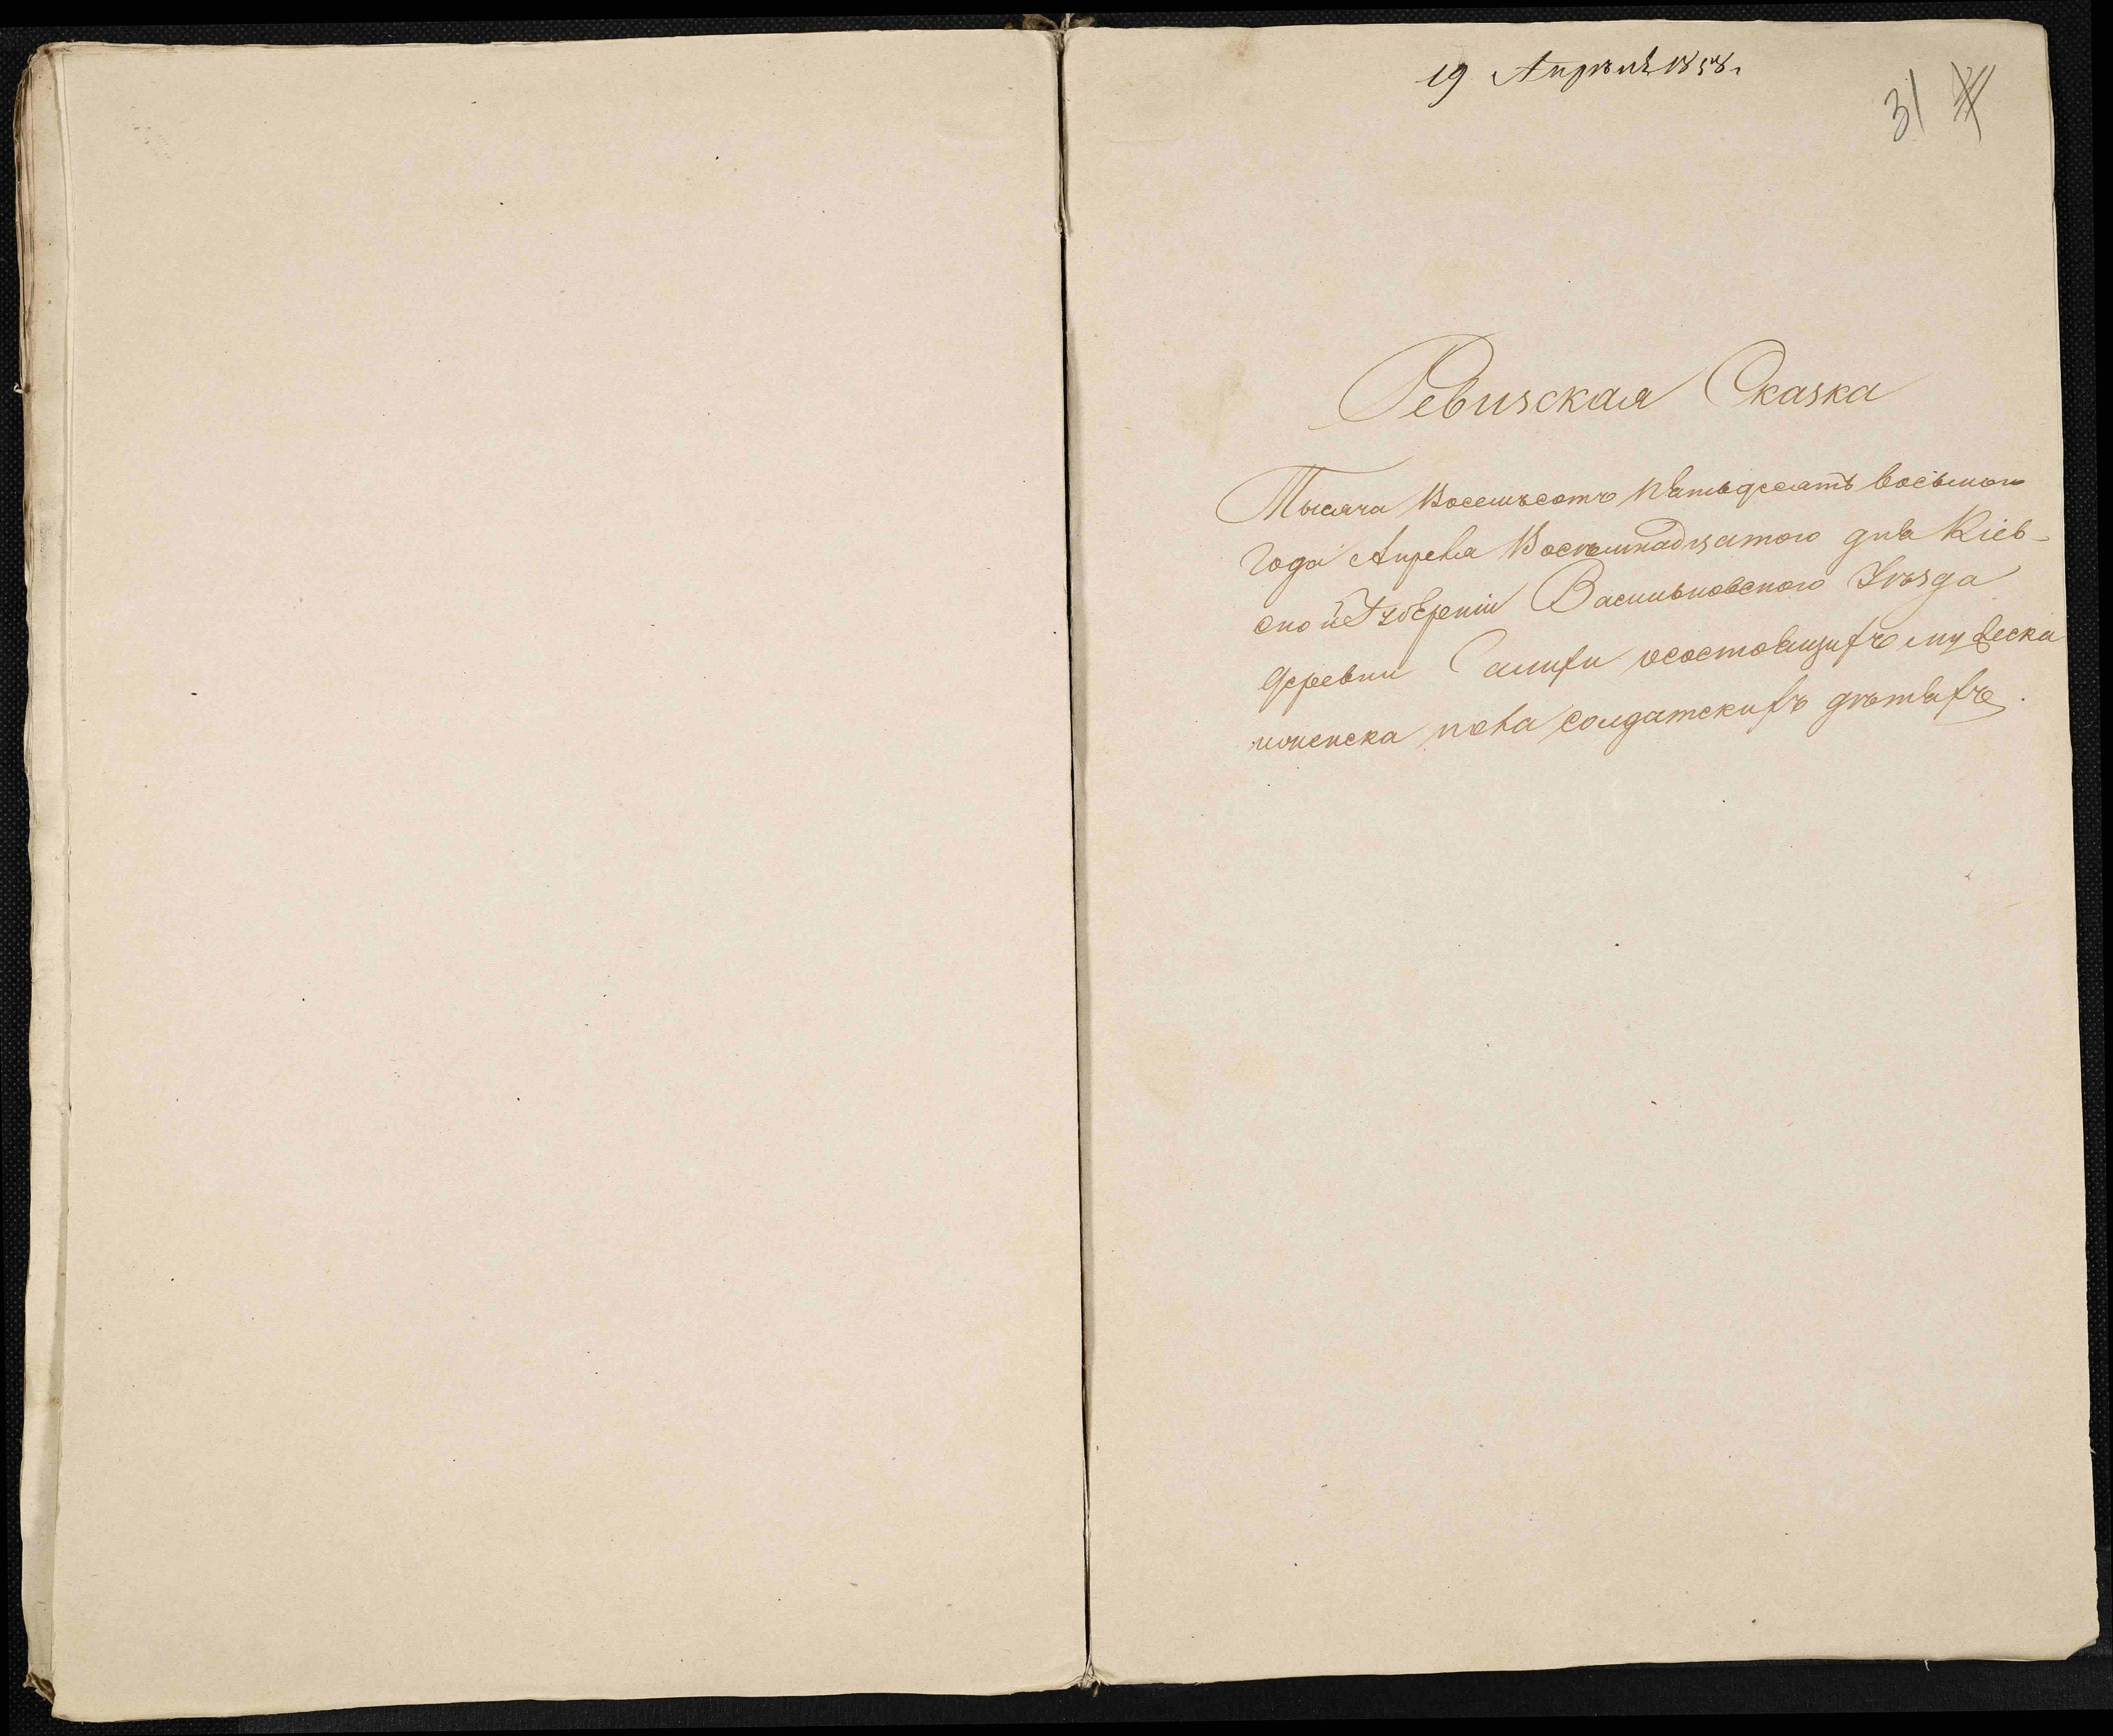 19 Апрѣля 1858 г.
31
Ревизская Сказка
Тысяча Восемъсотъ Пятьдесятъ восьмого
Года Апреля Восемнадцатого дня Кіев-
ской Губерніи Васильковского Уѣзда
деревни осостоящихъ мужеска
иженска пола солдатскихъ дѣтяхъ.